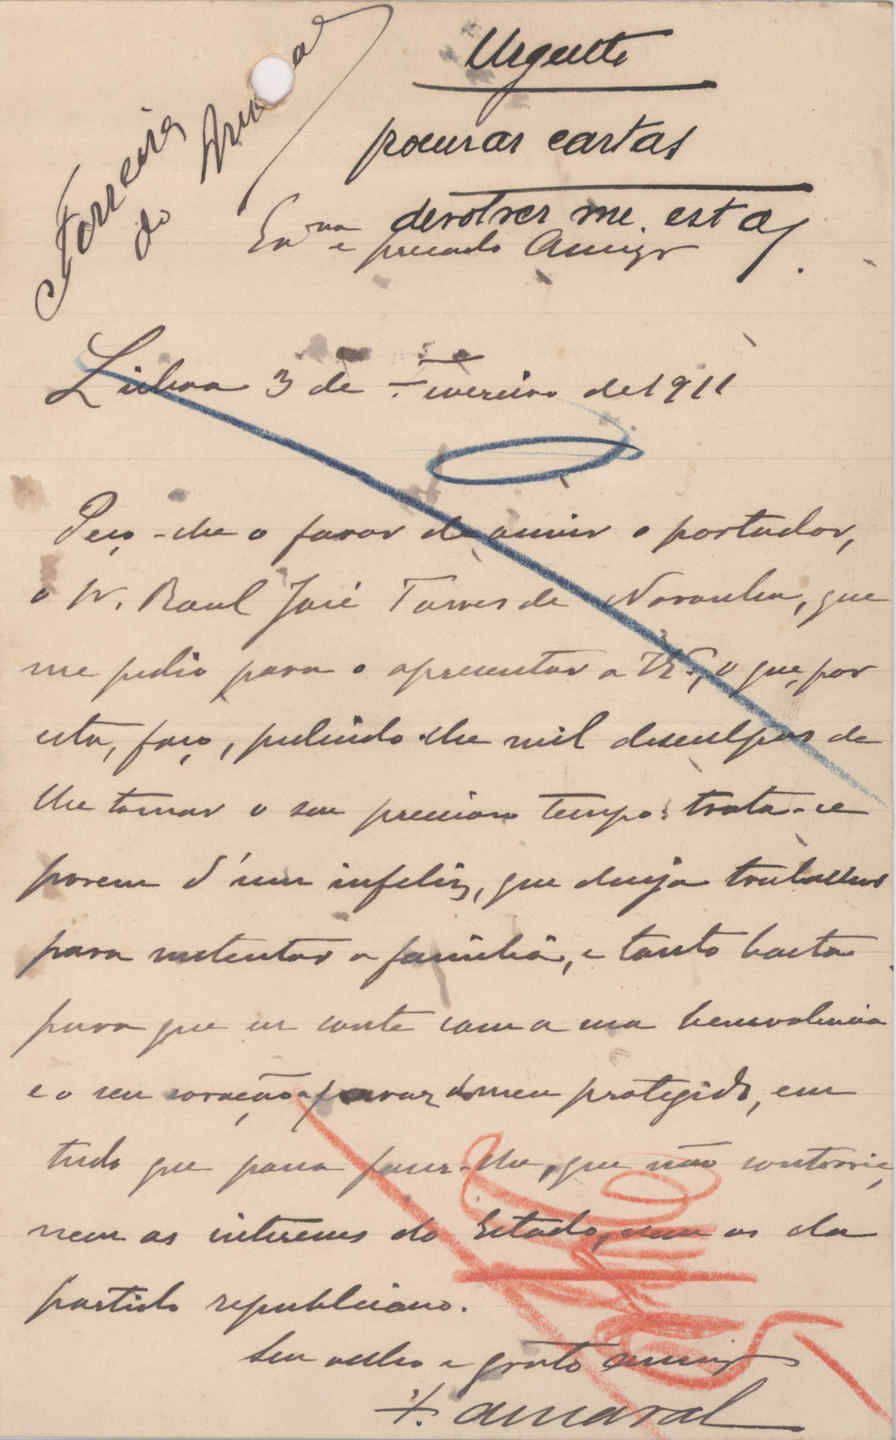 Ferreira
do Amaral
Urgente
procurar cartas
devolver me esta
Exmo e presado Amigo
Lisboa 3 de Fevereiro de 1911
Peço-lhe o favor de ouvir o portador,
o Sr. Raul José Torres de Noronha, que
me pedio para o apresentar a VE., o que, por
esta, faço, pedindo-lhe mil desculpas de
lhe tomar o seu precioso tempo: trata-se
porem d'um infeliz, que deseja trabalhar
para sustentar a familia, e tanto basta
para que eu conte com a sua benevolencia
e o seu coração a favor do meu protegido, em
tudo que possa fazer-lhe, que não contrarie,
nem os interesses do Estado, nem os do
partido republicano.
Seu velho e grato amigo
F. Amaral